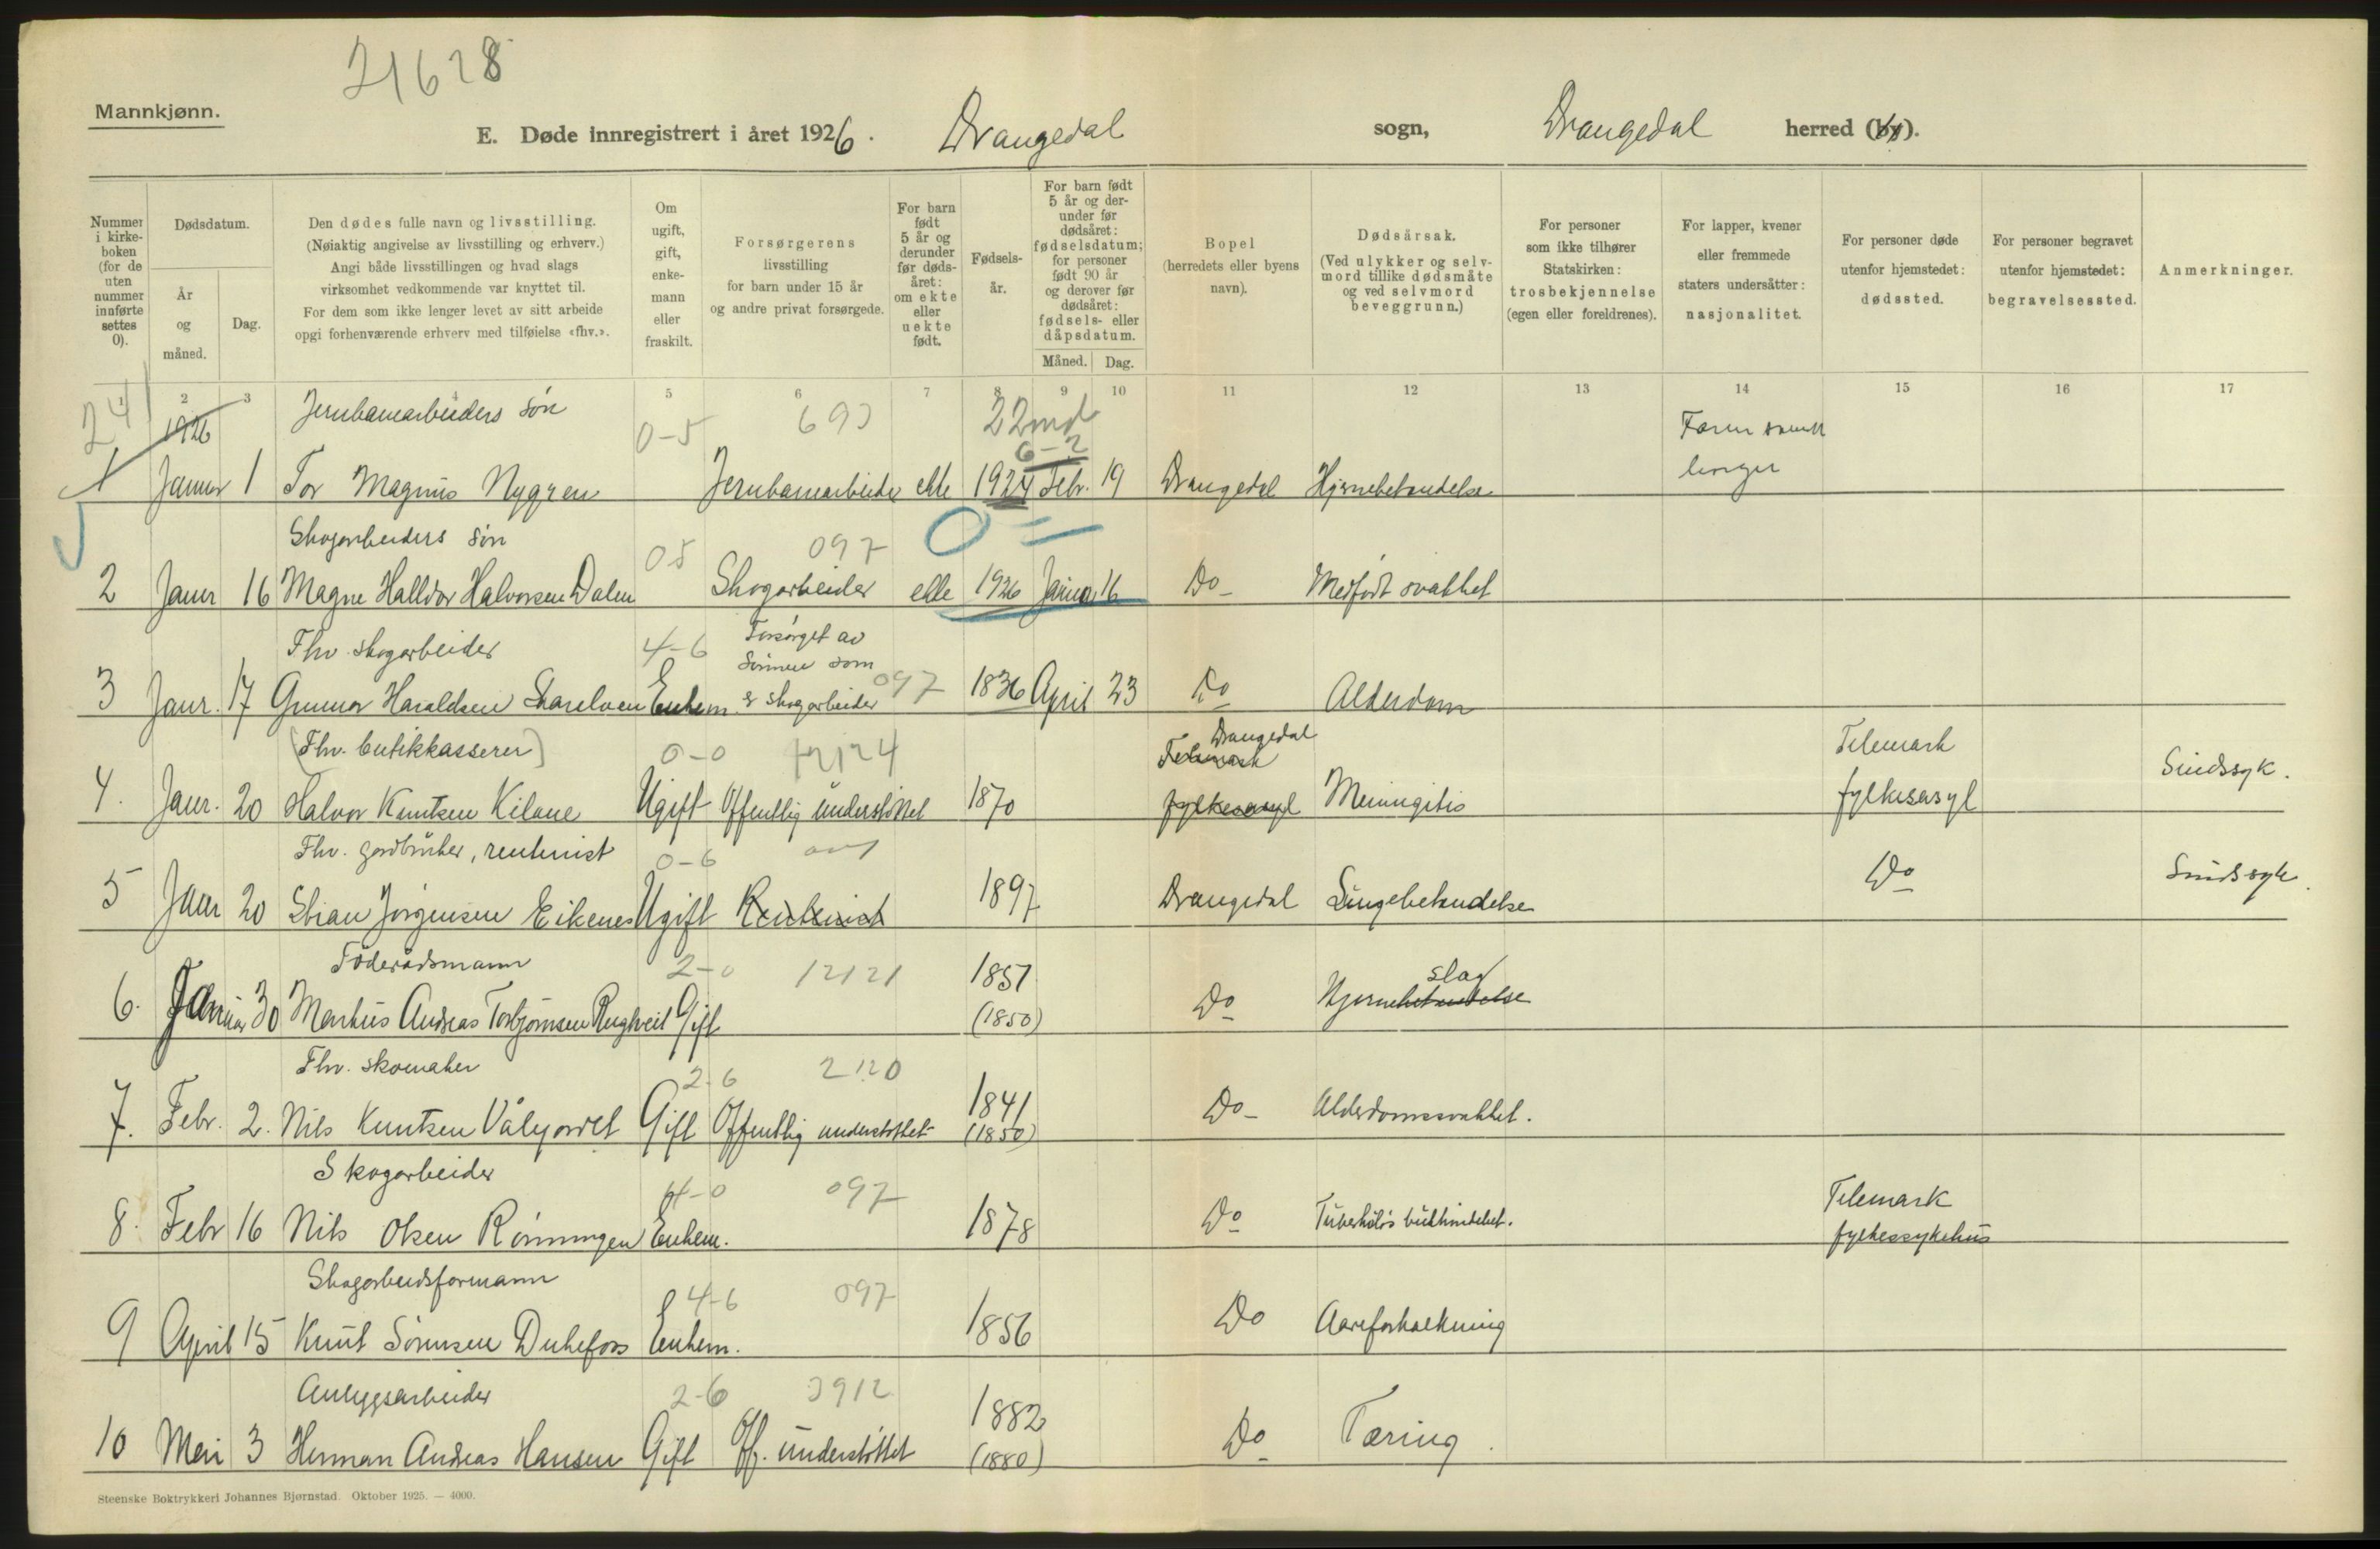 21628
Mannkjønn.
E. Døde innregistrert i året 1926. Drangedal sogn, Drangedal herred (by).
Nummer i kirkeboken (for de uten nummer innførte settes 0).
Dødsdatum.
År og måned.
Dag.
Den dødes fulle navn og livsstilling.
(Nøiaktig angivelse av livsstilling og erhverv.)
Angi både livsstillingen og hvad slags
virksomhet vedkommende var knyttet til.
For dem som ikke lenger levet av sitt arbeide
opgi forhenværende erhverv med tilføielse «fhv.».
Om ugift, gift, enkemann eller fraskilt.
Forsørgerens
livsstilling
for barn under 15 år
og andre privat forsørgede.
For barn født 5 år og derunder før dødsåret: om ekte eller uekte født.
Fødselsår.
For barn født 5 år og derunder før dødsåret: fødselsdatum; for personer født 90 år og derover før dødsåret: fødsels- eller dåpsdatum.
Måned. Dag.
Bopel
(herredets eller byens
navn).
Dødsårsak.
(Ved ulykker og selvmord tillike dødsmåte
og ved selvmord
beveggrunn.)
For personer
som ikke tilhører
Statskirken:
trosbekjennelse
(egen eller foreldrenes).
For lapper, kvener
eller fremmede
staters undersåtter:
nasjonalitet.
For personer døde
utenfor hjemstedet:
dødssted.
For personer begravet
utenfor hjemstedet:
begravelsessted.
Anmerkninger.
1 2 3 4 5 6 7 8 9 10 11 12 13 14 15 16 17
24 1926 Jernbanearbeiders sön 0-5 693 22 md 6-2
1 Januar 1 Tor Magnus Nygren Jernbanearbeider ekte 1924 Febr. 19 Drangedal Hjernebetendelse
Skogarbeiders sön 05 097 0
2 Januar 16 Magne Halldor Halvorsen Dalen Skogarbeider ekte 1926 Januar 16 Do Medfödt svakhet
Fhv. skogarbeider 4-6 Forsörget av
Sönnen som
3 Janr. 17 Gunnar Haraldsen Enkem. er skogarbeider 097 1836 April 23 Do Alderdom
(Fhv. butikkasserer) 0-0 Drangedal
Telemark Telemark
4. Janr. 20 Halvor Knutsen Kilane Ugift Offentlig understöttet 1870 fylkesasyl Meningitis fylkesasyl Sindssyk.
Fhv. gardbruker, rentenist 0-6
5 Janr 20 Stian Jörgensen Eikenes Ugift Rentenist 1897 Drangedal Lungebetendelse Do Sindssyk.
Föderådsmann 2-0 12121 slag
6. Januar 30 Markus Andreas Torbjörnsen Gift 1851 (1850) Do Hjernebetendelse
Fhv. skomaker 2-6 2120
7. Febr. 2. Nils Knutsen Gift Offentlig understöttet 1841 (1850) Do Alderdomssvakhet.
Skogarbeider 4-0 097
8. Febr 16 Nils Olsen Rönningen Enkem. 1878 Do Tuberkulös bukhindebet. Telemark
fylkessykehus
Skogarbeidsformann 4-6 097
9 April 15 Knut Sörensen Dukefoss Enkem. 1856 Do Aareforkalkning
Anleggsarbeider 2-6 3912
10 Mai 3 Herman Andreas Hansen Gift Off. understöttet 1882 (1880) Do Tæring.
Steenske Boktrykkeri Johannes Bjørnstad. Oktober 1925. — 4000.